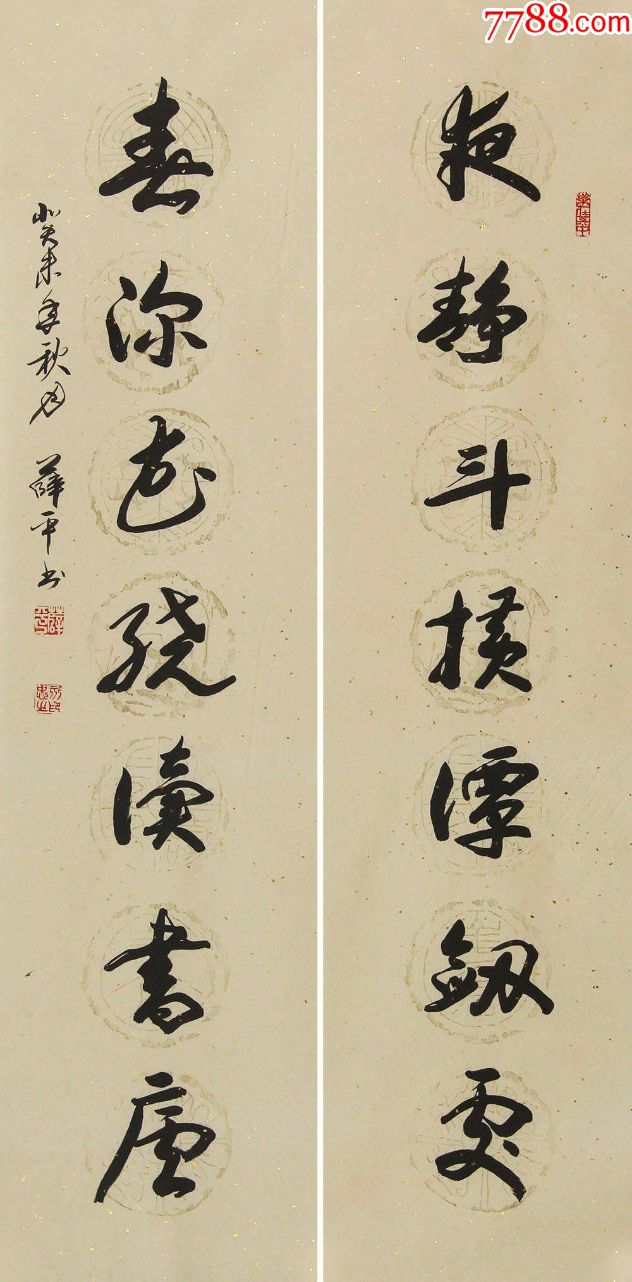 7788.com
夜静斗横谭劔处
春深花绕读书庐
癸未年秋月 薛平书